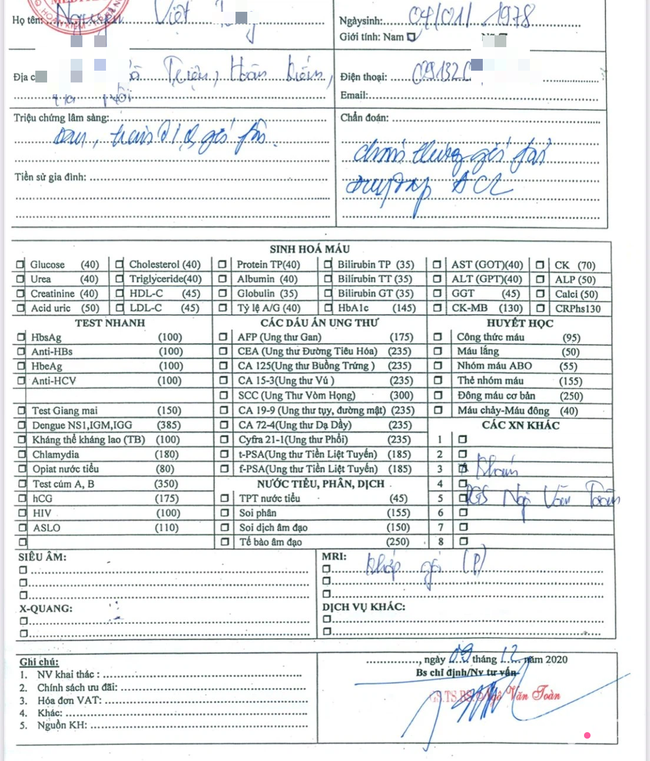 Họ tên: Nguyễn Việt
Ngày sinh: 04/01/1978
Giới tính: Nam
Địa c Triệu, Hoàn Kiếm,
Hà Nội
Điện thoại: 09132
Email:
Triệu chứng lâm sàng:
Chẩn đoán:
đau, gối
chấn thương gối phải
ACL
Tiền sử gia đình:
SINH HOÁ MÁU
Glucose (40) Cholesterol (40) Protein TP(40) Bilirubin TP (35) AST (GOT)(40) CK (70)
Urea (40) Triglyceride(40) Albumin (40) Bilirubin TT (35) ALT (GPT)(40) ALP (50)
Creatinine (40) HDL-C (45) Globulin (35) Bilirubin GT (35) GGT (45) Calci (50)
Acid uric (50) LDL-C (45) Tỷ lệ A/G (40) HbA1c (145) CK-MB (130) CRPhs130
TEST NHANH CÁC DẤU ẤN UNG THƯ HUYẾT HỌC
HbsAg (100) AFP (Ung thư Gan) (175) Công thức máu (95)
Anti-HBs (100) CEA (Ung thư Đường Tiêu Hóa) (235) Máu lắng (50)
HbeAg (100) CA 125(Ung thư Buồng Trứng ) (235) Nhóm máu ABO (55)
Anti-HCV (100) CA 15-3(Ung thư Vú ) (235) Thẻ nhóm máu (155)
SCC (Ung Thư Vòm Họng) (300) Đông máu cơ bản (250)
Test Giang mai (150) CA 19-9 (Ung thư tụy, đường mật) (235) Máu chảy-Máu đông (40)
Dengue NS1,IGM,IGG (385) CA 72-4(Ung thư Dạ Dầy) (235) CÁC XN KHÁC
Kháng thể kháng lao (TB) (100) Cyfra 21-1(Ung thư Phổi) (235) 1
Chlamydia (180) t-PSA(Ung thư Tiền Liệt Tuyến) (185) 2
Opiat nước tiểu (80) f-PSA(Ung thư Tiền Liệt Tuyến) (185) 3 Khám
Test cúm A, B (350) NƯỚC TIỂU, PHÂN, DỊCH 4
hCG (175) TPT nước tiểu (45) 5 PGS Ngô Văn Toàn
HIV (100) Soi phân (155) 6
ASLO (110) Soi dịch âm đạo (150) 7
Tế bào âm đạo (250) 8
SIÊU ÂM: MRI: Khớp gối (P)
X-QUANG: DỊCH VỤ KHÁC:
Ghi chú:
1. NV khai thác :
2. Chính sách ưu đãi:
3. Hóa đơn VAT:
4. Khác:
5. Nguồn KH:
, ngày 09 tháng 12 năm 2020
Bs chỉ định/Nv tư vấn
Văn Toàn